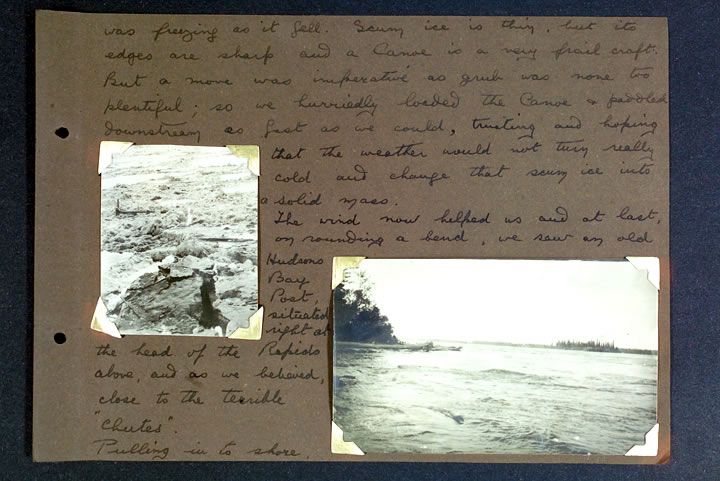 was freezing as it fell. Scum ice is thin, but its
edges are sharp and a Canoe is a very frail craft.
But a move was imperative as grub was none too
plentiful; so we hurriedly loaded the Canoe & paddled
downstream as fast as we could, trusting and hoping
that the weather would not turn really
cold and change that scum ice into
a solid mass.
The wind now helped us and at last,
on rounding a bend, we saw an old
Hudsons
Bay
Post,
situated
right at
the head of the Rapids
above, and as we believed,
close to the terrible
"Chutes".
Pulling in to shore,